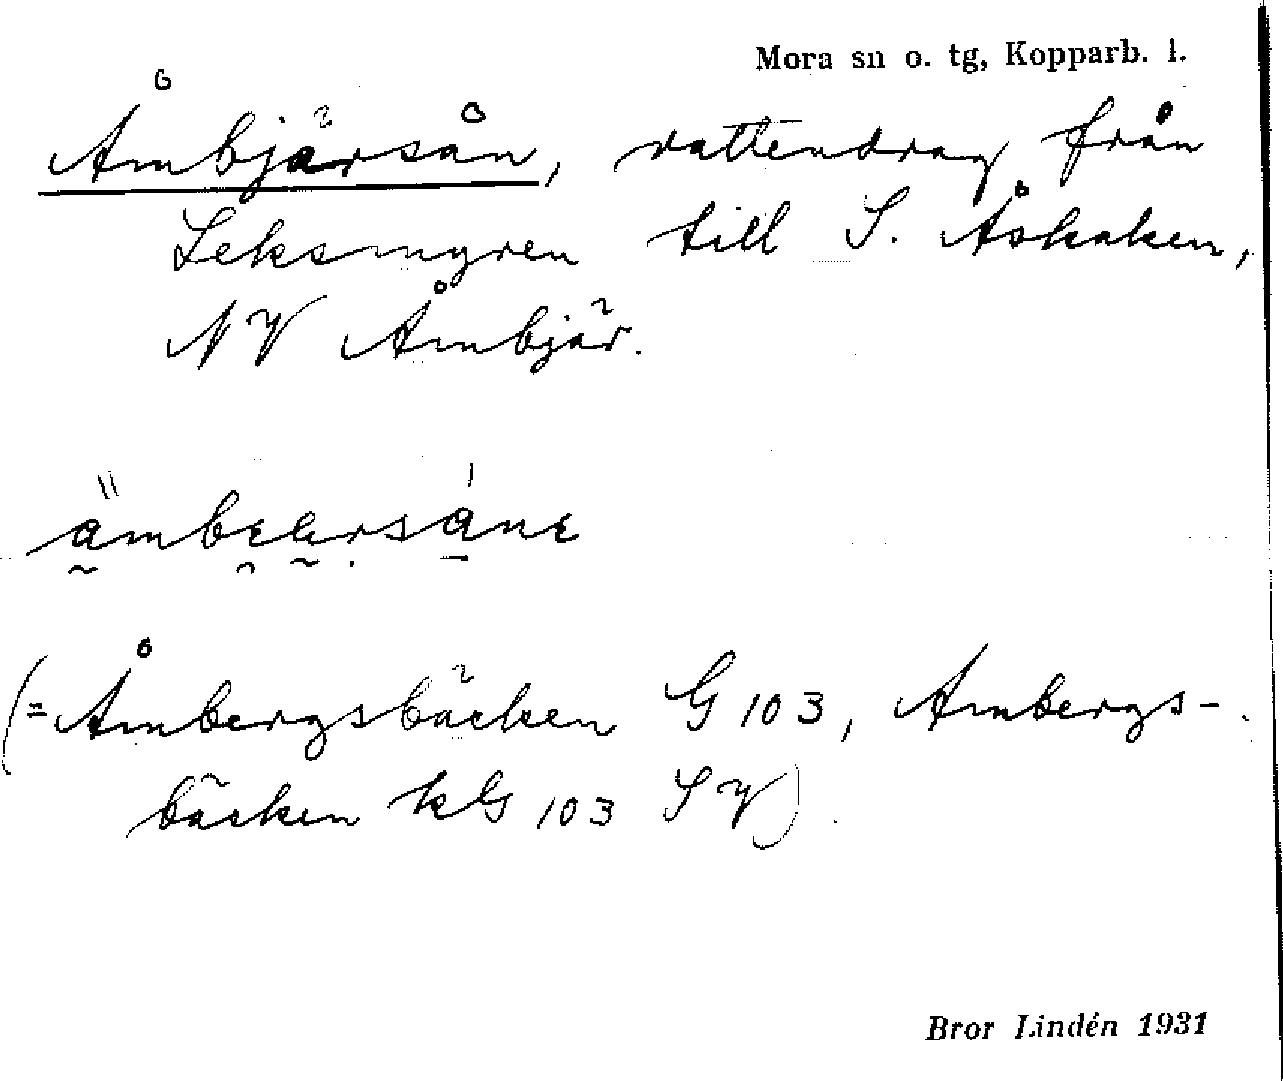 Mora sn o. tg, Kopparb. l.
Åmbjärsån, vattendrag från
Leksmyren till S. Åskaken,
NV Åmbjär.
(= Åmbergsbäcken G 103, Ambergs-
bäcken kG 103 SV).
Bror Lindén 1931